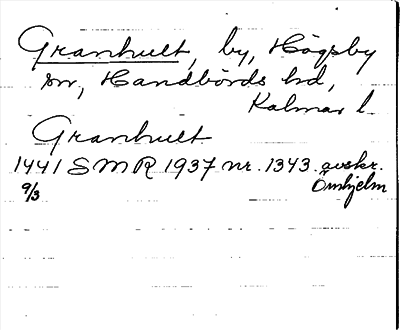 Granhult, by, Högsby
sn, Handbörds hd,
Kalmar l.
Granhult
1441 SMR 1937 nr. 1343. avskr.
9/3 Örnhjelm